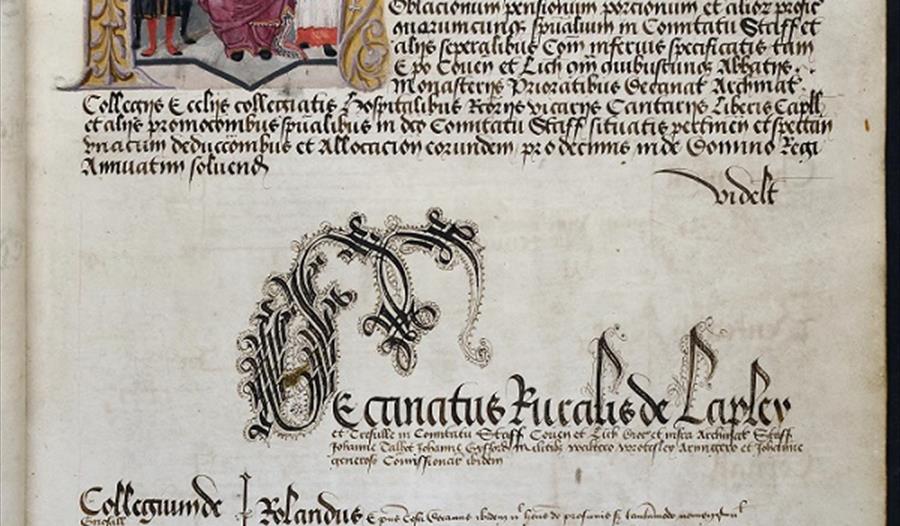 Oblacionum pensionum porcionum et alior profic
quarumcunq spualium in Comitatu Staff et
alijs seperalibus Com inferius specificatis tam
Epo Coven et Lich qm quibuscunq Abbatijs
Monasterijs Prioratibus Decanat Archinat
Collegijs Ecclijs collegiatis Hospitalibus Rorijs vicarijs Cantarijs Liberis Capll
et alijs promocombus spualibus in dco Comitatu Staff situatis pertinen et spectan
vnacum deduccombus et Allocacion eorundem pro decimis inde Domino Regi
Annuatim solvend
videlt
Decanatus Ruralis de Lapley
et Tresulle in Comitatu Staff Coven et Lich Dioc et infra Archinat Staff
Johanne Talbot Johanne Gyfford Militibz Waltero Wrotesley Armigero et Johanne
generoso Comissionar ibidem
Collegium de Rolandus Epus Decanus ibidem
Gnosall